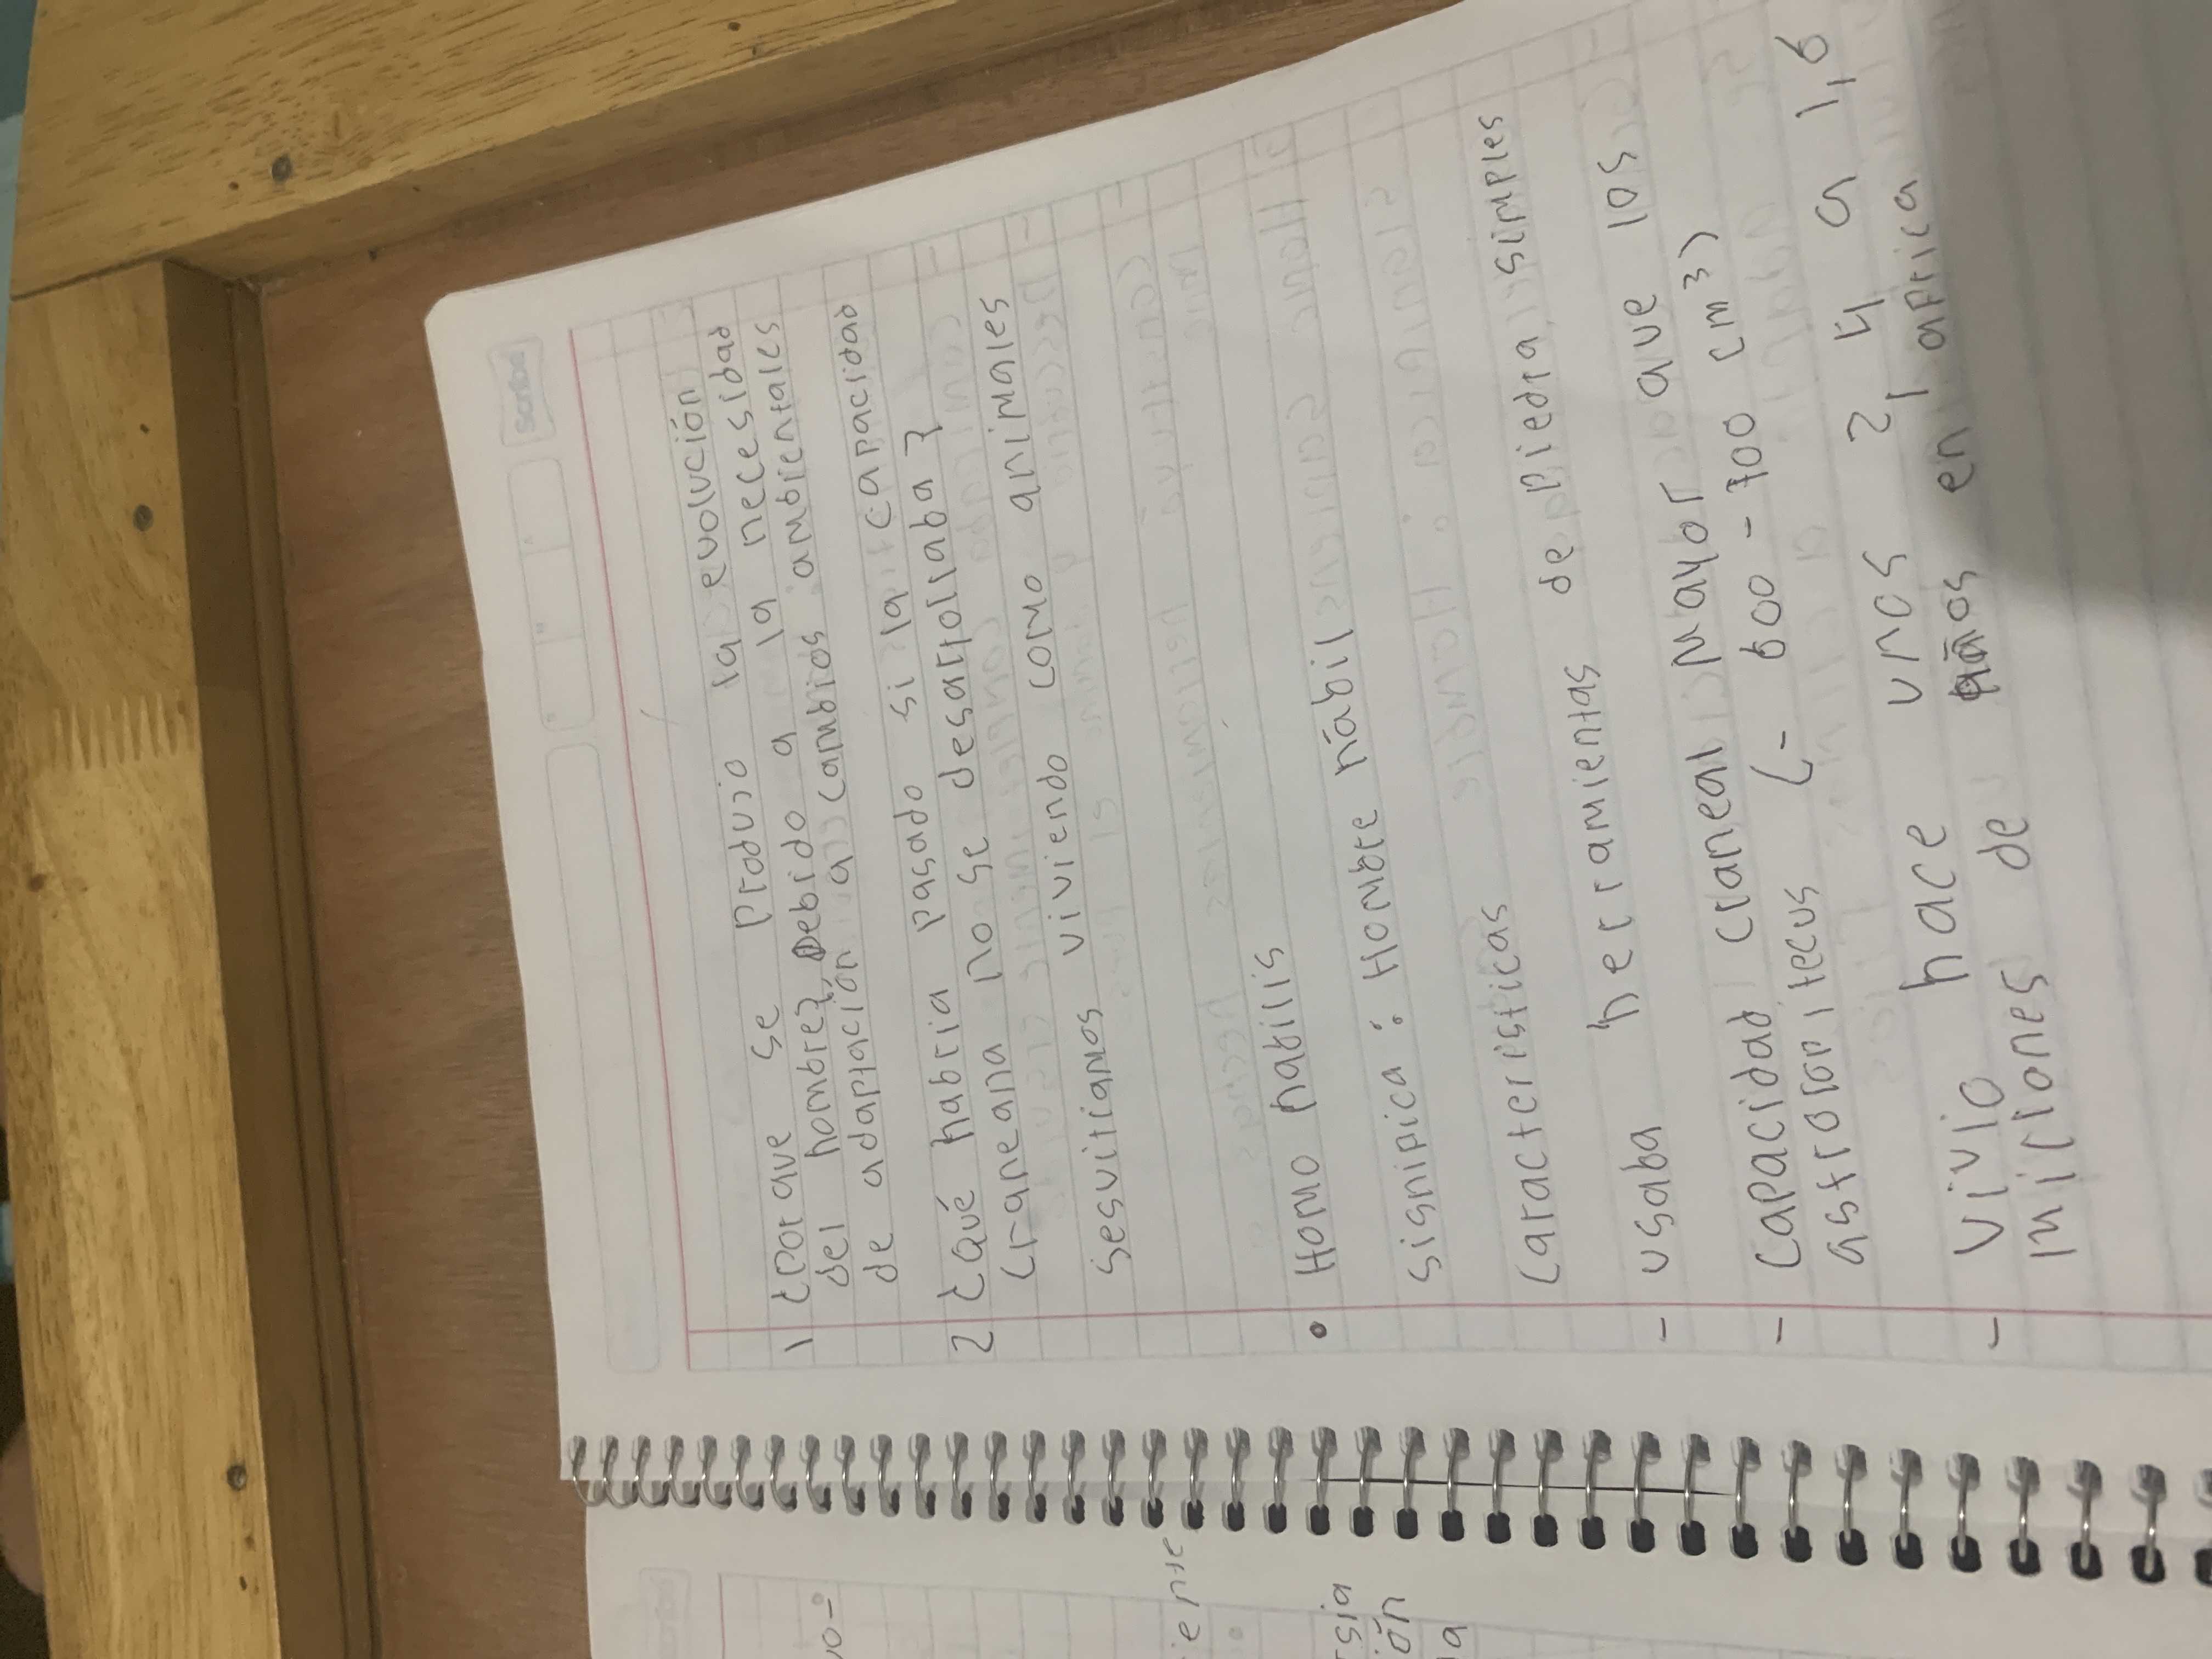 Scribe
1 ¿Porque se produjo la evolución
del hombre?, Debido a la necesidad
de adaptación a cambios ambientales
2 ¿Qué habria pasado si la capacidad
craneana no se desarrollaba?
Seguiriamos viviendo como animales
• Homo habilis
Significa: Hombre hábil
Caracteristicas
- usaba herramientas de piedra simples
- Capacidad craneal mayor que los
astrolopitecus (- 600 - 700 cm3)
- Vivio hace unos 2,4 a 1,6
millones de años en africa
vo-
iente
rsia
ión
a